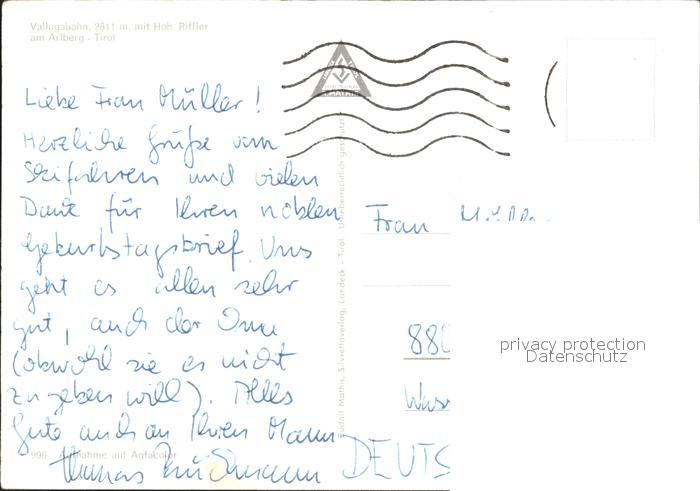 Vallugabahn, 2811 m, mit Hoh. Riffler
am Arlberg - Tirol
Liebe Frau Müller!
Herzliche Grüße vom
Skifahren und vielen
Dank für Ihren noblen
Geburtstagsbrief. Uns
geht es allen sehr
gut, auch der Oma
(obwohl sie es nicht
zugeben will). Alles
Gute auch an Ihren Mann
Thomas
996 Aufnahme auf Agfacolor
Rudolf Mathis, Silvrettaverlag, Landeck - Tirol. Urheberrechtlich geschützt
Frau
880
Wass
DEUTS
privacy protection
Datenschutz